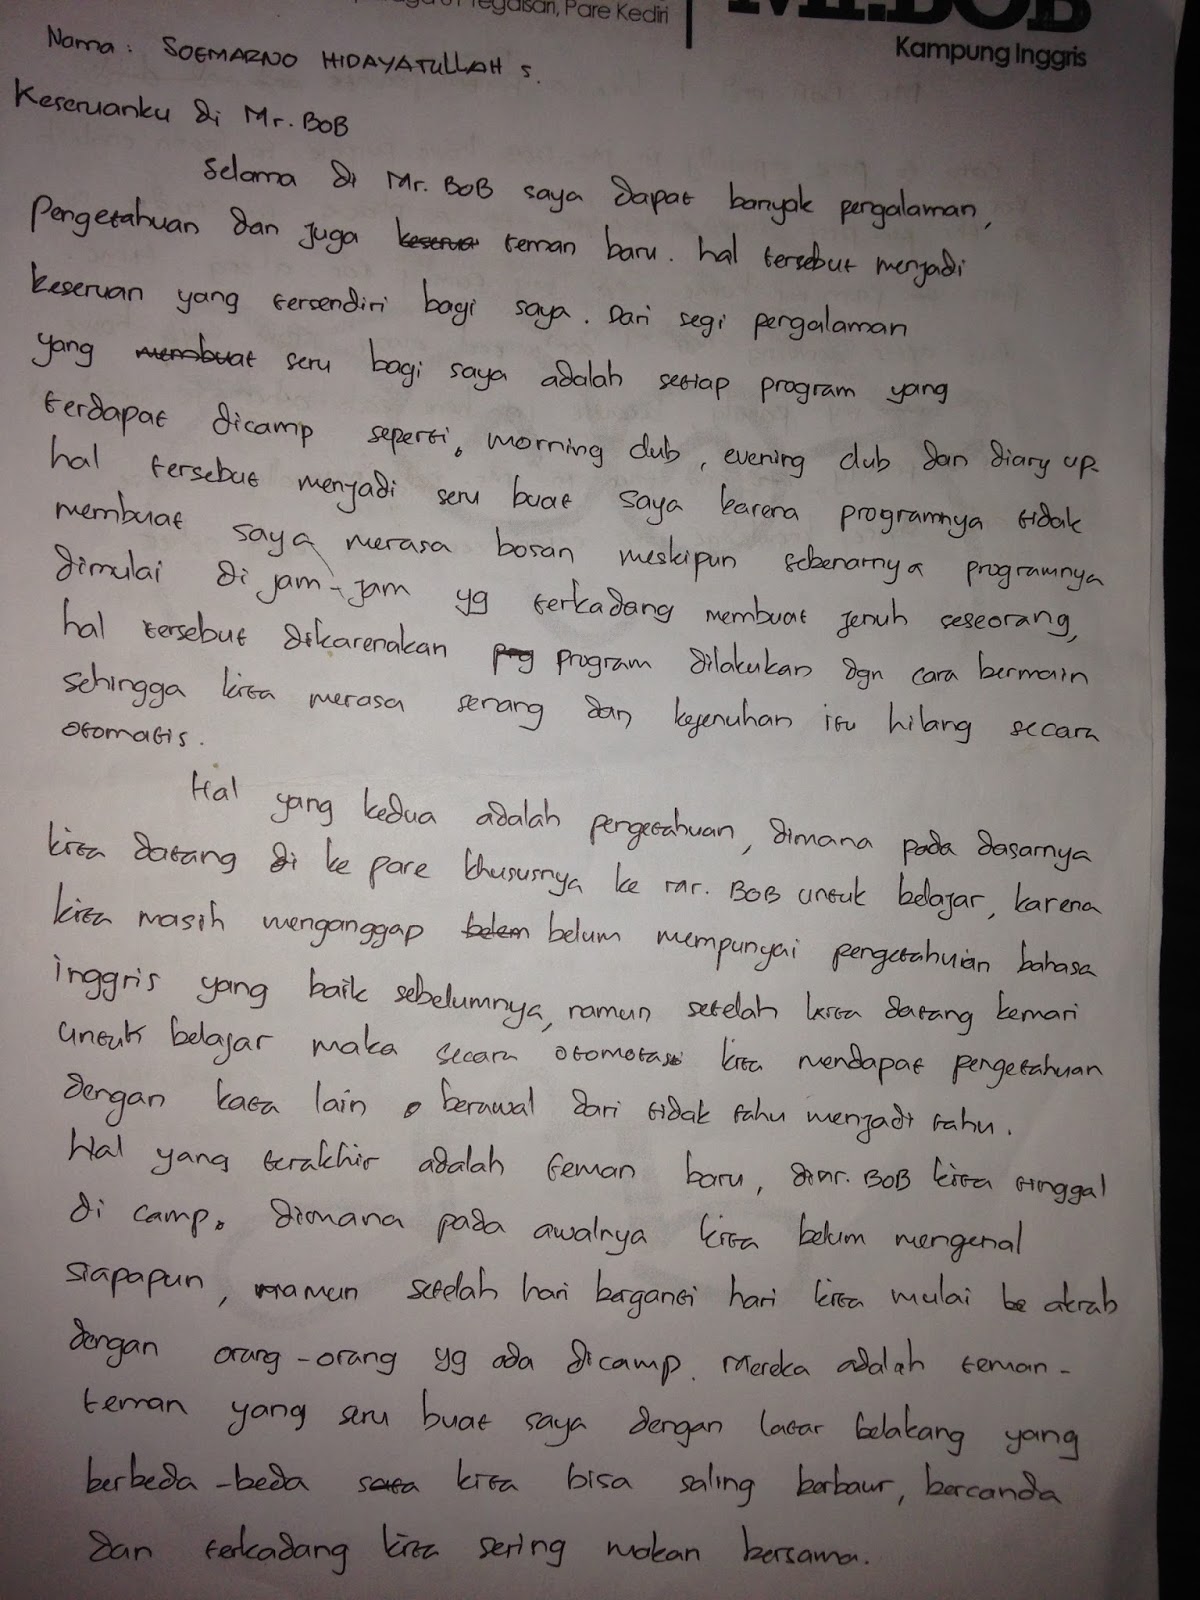 Tegalsari, Pare Kediri
Mr.BOB
Kampung Inggris
Nama : SOEMARNO HIDAYATULLAH S.
Keseruanku di Mr. BOB
Selama di Mr. BOB saya dapat banyak pengalaman,
Pengetahuan dan juga keserua teman baru. hal tersebut menjadi
keseruan yang tersendiri bagi saya. Dari segi pengalaman
yang membuat seru bagi saya adalah setiap program yang
terdapat dicamp seperti, morning club, evening club dan diary up.
hal tersebut menjadi seru buat saya karena programnya tidak
membuat saya merasa bosan meskipun sebenarnya programnya
dimulai di jam-jam yg terkadang membuat jenuh seseorang,
hal tersebut dikarenakan prg program dilakukan dgn cara bermain
sehingga kita merasa senang dan kejenuhan itu hilang secara
otomatis.
Hal yang kedua adalah pengetahuan, dimana pada dasarnya
kita datang di ke pare khususnya ke mr. BOB untuk belajar, karena
kita masih menganggap belem belum mempunyai pengetahuian bahasa
inggris yang baik sebelumnya, namun setelah kita datang kemari
untuk belajar maka secara otomotasi kita mendapat pengetahuan
dengan kata lain berawal dari tidak tahu menjadi tahu.
Hal yang terakhir adalah teman baru, dimr. BOB kita tinggal
di camp. dimana pada awalnya kita belum mengenal
siapapun, namun setelah hari berganti hari kita mulai be akrab
dengan orang-orang yg ada dicamp. Mereka adalah teman-
teman yang seru buat saya dengan latar belakang yang
berbeda-beda sata kita bisa saling berbaur, bercanda
dan terkadang kita sering makan bersama.